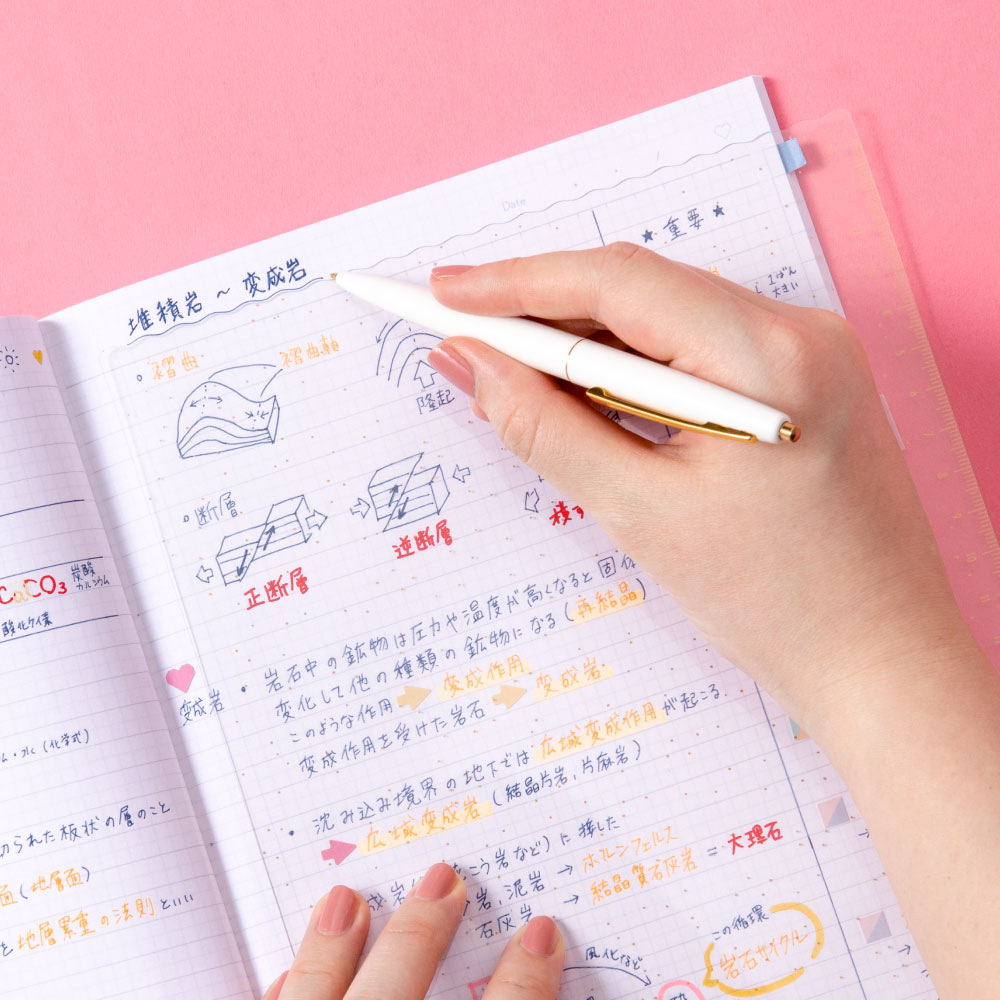 CaCO₃ 炭酸
カルシウム
酸化ケイ素
(化学式)
切られた板状の層のこと
面(地層面)
を地層累重の法則といい
Date
堆積岩 ～ 変成岩
★ 重要 ★
1ばん
大きい
褶曲
褶曲軸
隆起
断層
正断層
逆断層
横ず
変成岩
・岩石中の鉱物は圧力や温度が高くなると固体
変化して他の種類の鉱物になる(再結晶)
このような作用 → 変成作用
変成作用を受けた岩石 → 変成岩
・沈み込み境界の地下では広域変成作用が起こる.
→ 広域変成岩 (結晶片岩, 片麻岩)
こう岩など)に接した
岩, 泥岩 → ホルンフェルス
石灰岩 → 結晶質石灰岩 = 大理石
風化など
この循環
岩石サイクル